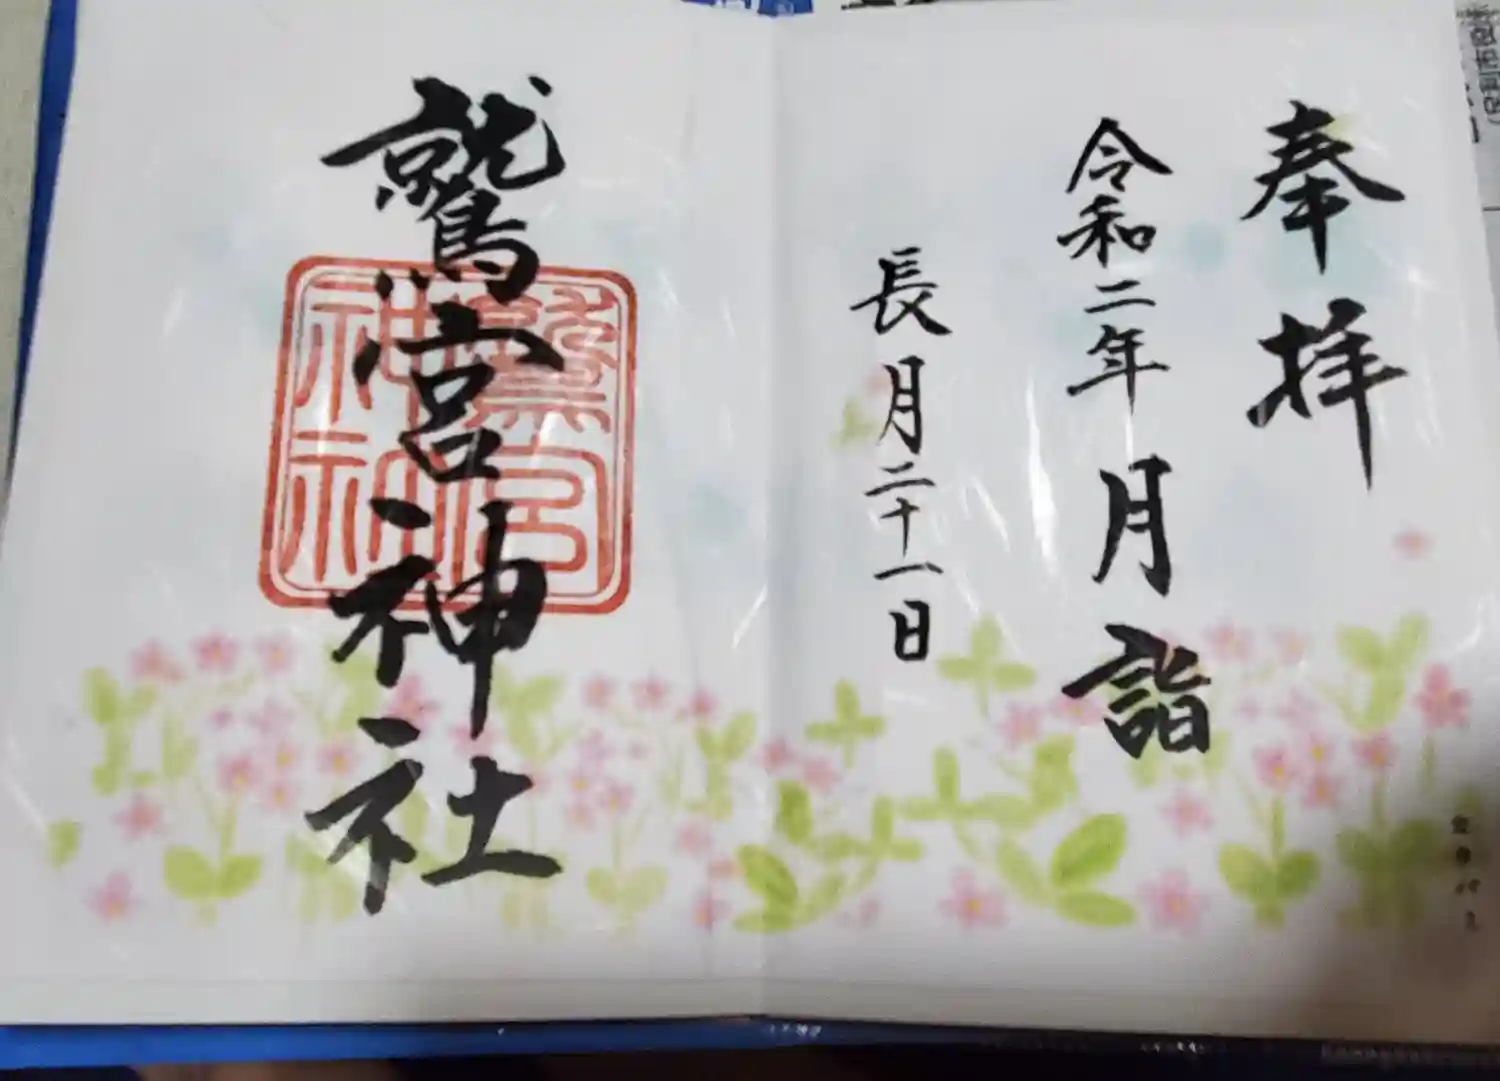 奉拝
令和二年 月詣
長月二十一日
鷲宮神社
鷲宮神社